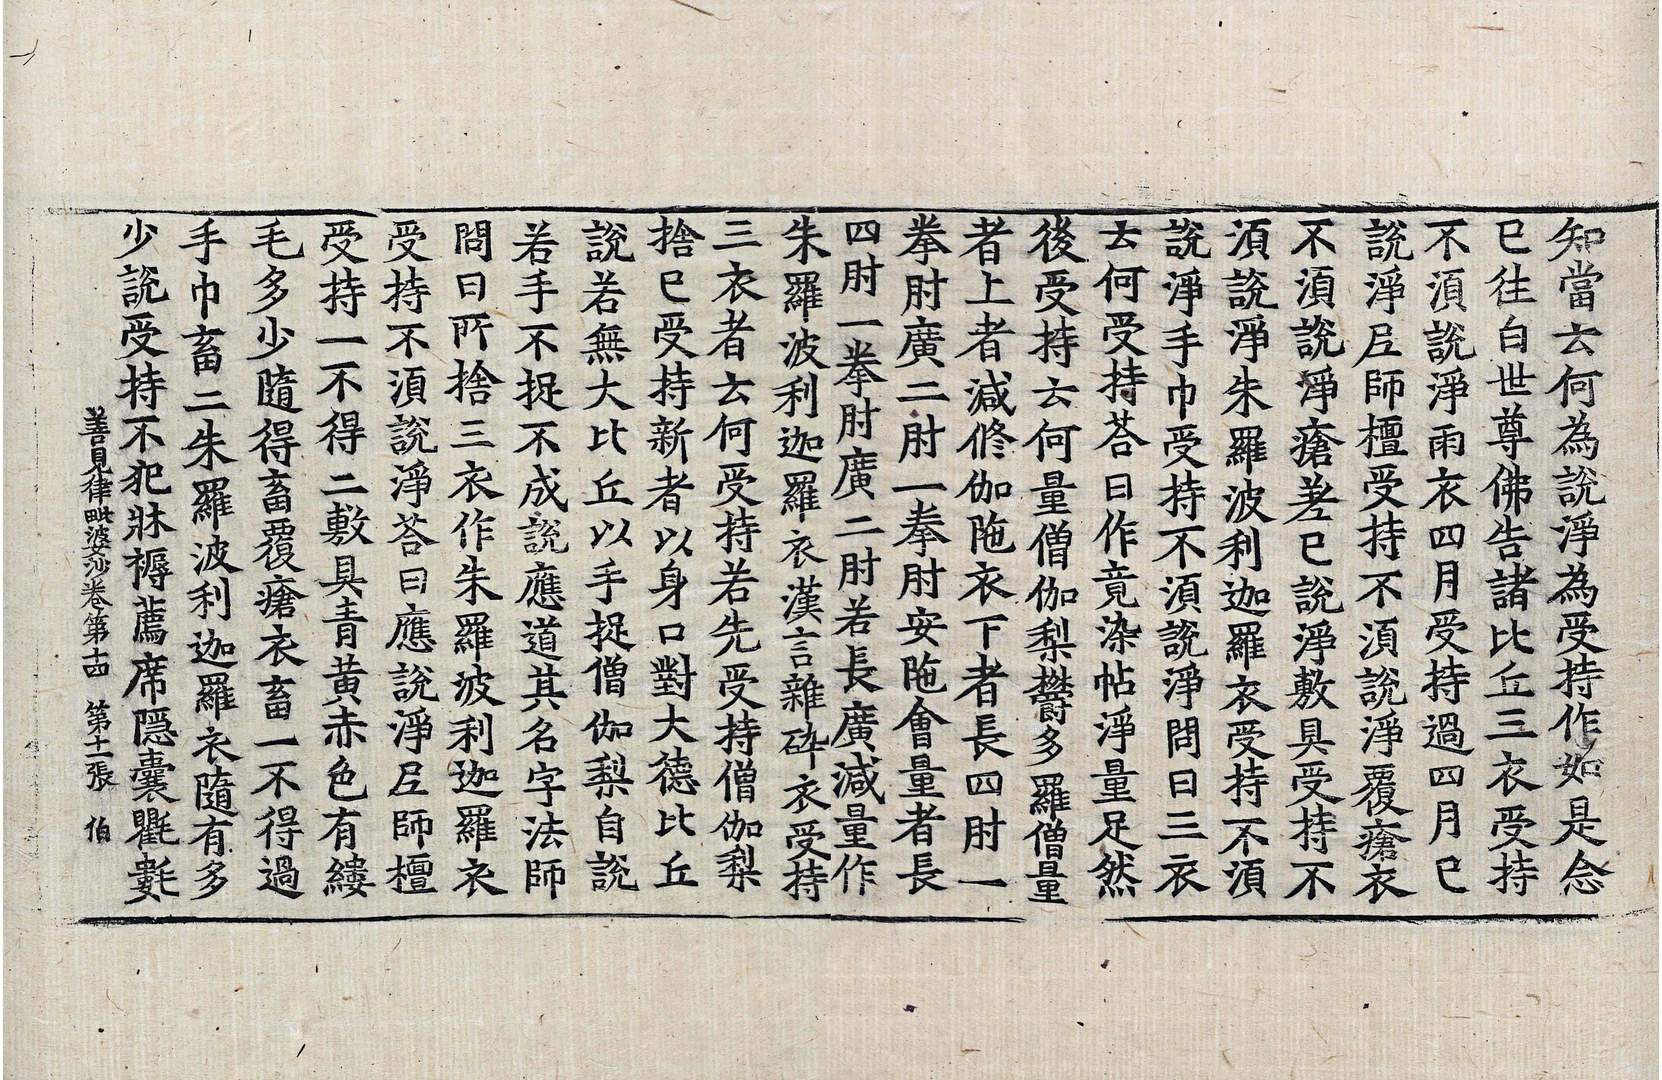 知當云何為說淨為受持作如是念
已往白世尊佛告諸比丘三衣受持
不須說淨雨衣四月受持過四月已
說淨尼師檀受持不須說淨覆瘡衣
不須說淨瘡差已說淨敷具受持不
須說淨朱羅波利迦羅衣受持不須
說淨手巾受持不須說淨問曰三衣
云何受持荅曰作竟染帖淨量足然
後受持云何量僧伽梨欝多羅僧量
者上者減修伽陁衣下者長四肘一
拳肘廣二肘一拳肘安陁會量者長
四肘一拳肘廣二肘若長廣減量作
朱羅波利迦羅衣漢言雜碎衣受持
三衣者云何受持若先受持僧伽梨
捨已受持新者以身口對大德比丘
說若無大比丘以手捉僧伽梨自說
若手不捉不成說應道其名字法師
問曰所捨三衣作朱羅波利迦羅衣
受持不須說淨荅曰應說淨尼師檀
受持一不得二敷具青黃赤色有縷
毛多少隨得畜覆瘡衣畜一不得過
手巾畜二朱羅波利迦羅衣隨有多
少說受持不犯牀褥薦席隱囊氍𣰽
善見律毗婆沙卷第十四　第十二張　伯